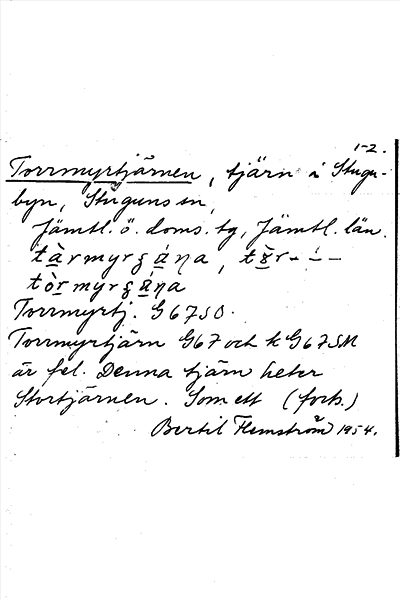 1-2.
Torrmyrtjärnen, tjärn i Stugu-
byn, Stuguns sn,
Jämtl. ö. doms. tg, Jämtl. län.
Torrmyrtj. G67SO.
Torrmyrtjärn G67 och k G67SM
är fel. Denna tjärn heter
Stortjärnen. Som ett (forts.)
Bertil Flemström 1954.